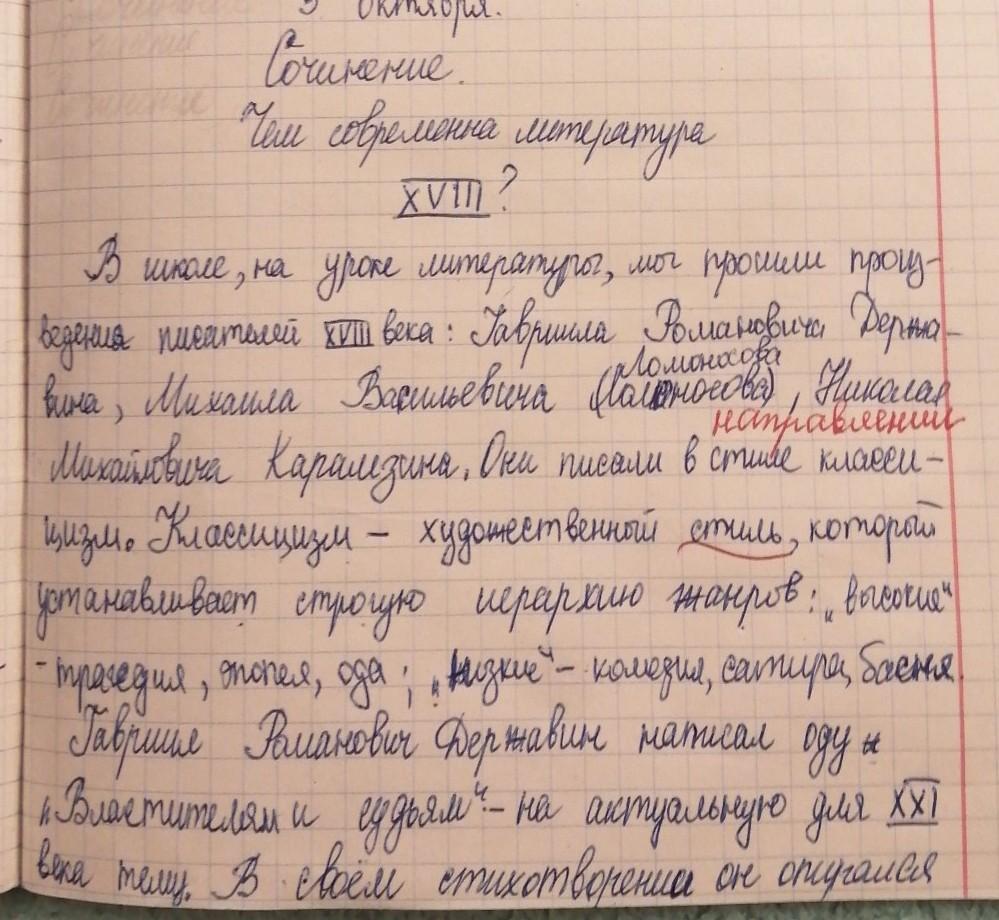 3 октября.
Сочинение.
Чем современна литература
XVIII?
В школе, на уроке литературы, мы прошли произ-
ведения писателей XVIII века: Гавриила Романовича Держа-
Ломоносова
вина, Михаила Васильевича (Ломоносова), Николая
направлении
Михайловича Карамзина. Они писали в стиле класси-
цизм. Классицизм – художественный стиль, который
устанавливает строгую иерархию жанров: „высокие“
- трагедия, эпопея, ода; „низкие“ – комедия, сатира, басня.
Гавриил Романович Державин написал оду
„Властителям и судьям“ – на актуальную для XXI
века тему. В своём стихотворении он